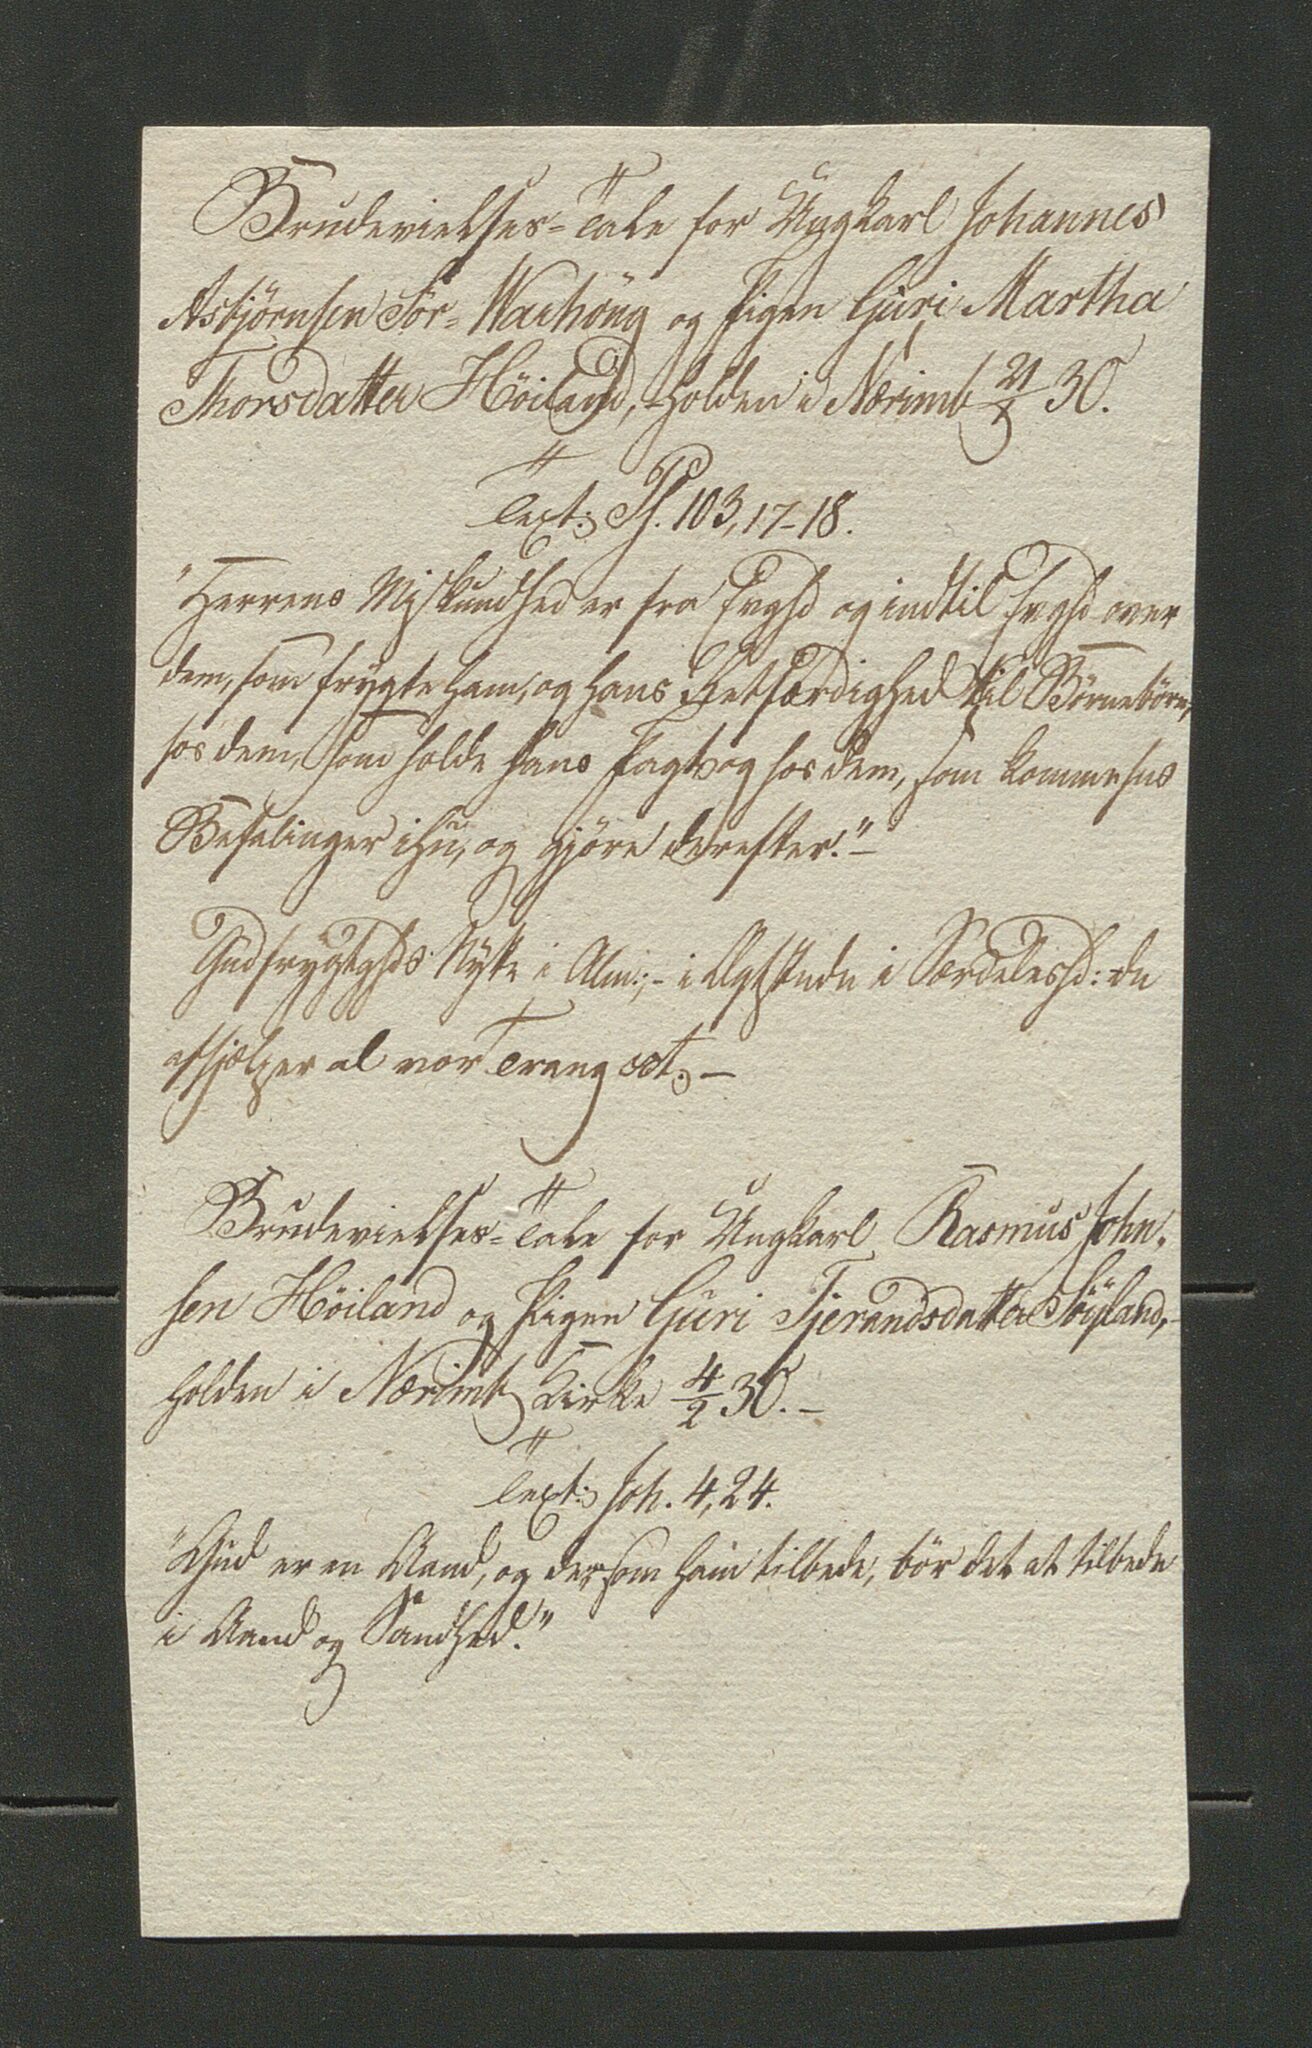 Brudevielses-Tale for Ungkarl Johannes
Asbjörnsen Sör-Warhöug og Pigen Guri Martha
Thorsdatter Höiland, holden i Nærimb 21/1 30.
Text: Ps. 103, 17-18.
"Herrens Miskundhed er fra Evghd og indtil Evghd over
dem, som frygte ham, og hans Retfærdighed til Börnebörn,
hos dem, som holde hans Pagt og hos dem, som komme hns
Befalinger ihu, og gjöre derefter." –
Gudfrygtghds Nytte i Alm:, – i Ægtstnde i Særdeleshd: dn
afhjælper al vor Trang oct. –
Brudevielses-Tale for Ungkarl Rasmus John-
sen Höiland og Pigen Guri Tjerandsdatter Höiland, –
holden i Nærimb Kirke 4/2 30. –
Text: Joh. 4, 24.
"Gud er en Aand, og de, som ham tilbede, bör det at tilbede
i Aand og Sandhed."